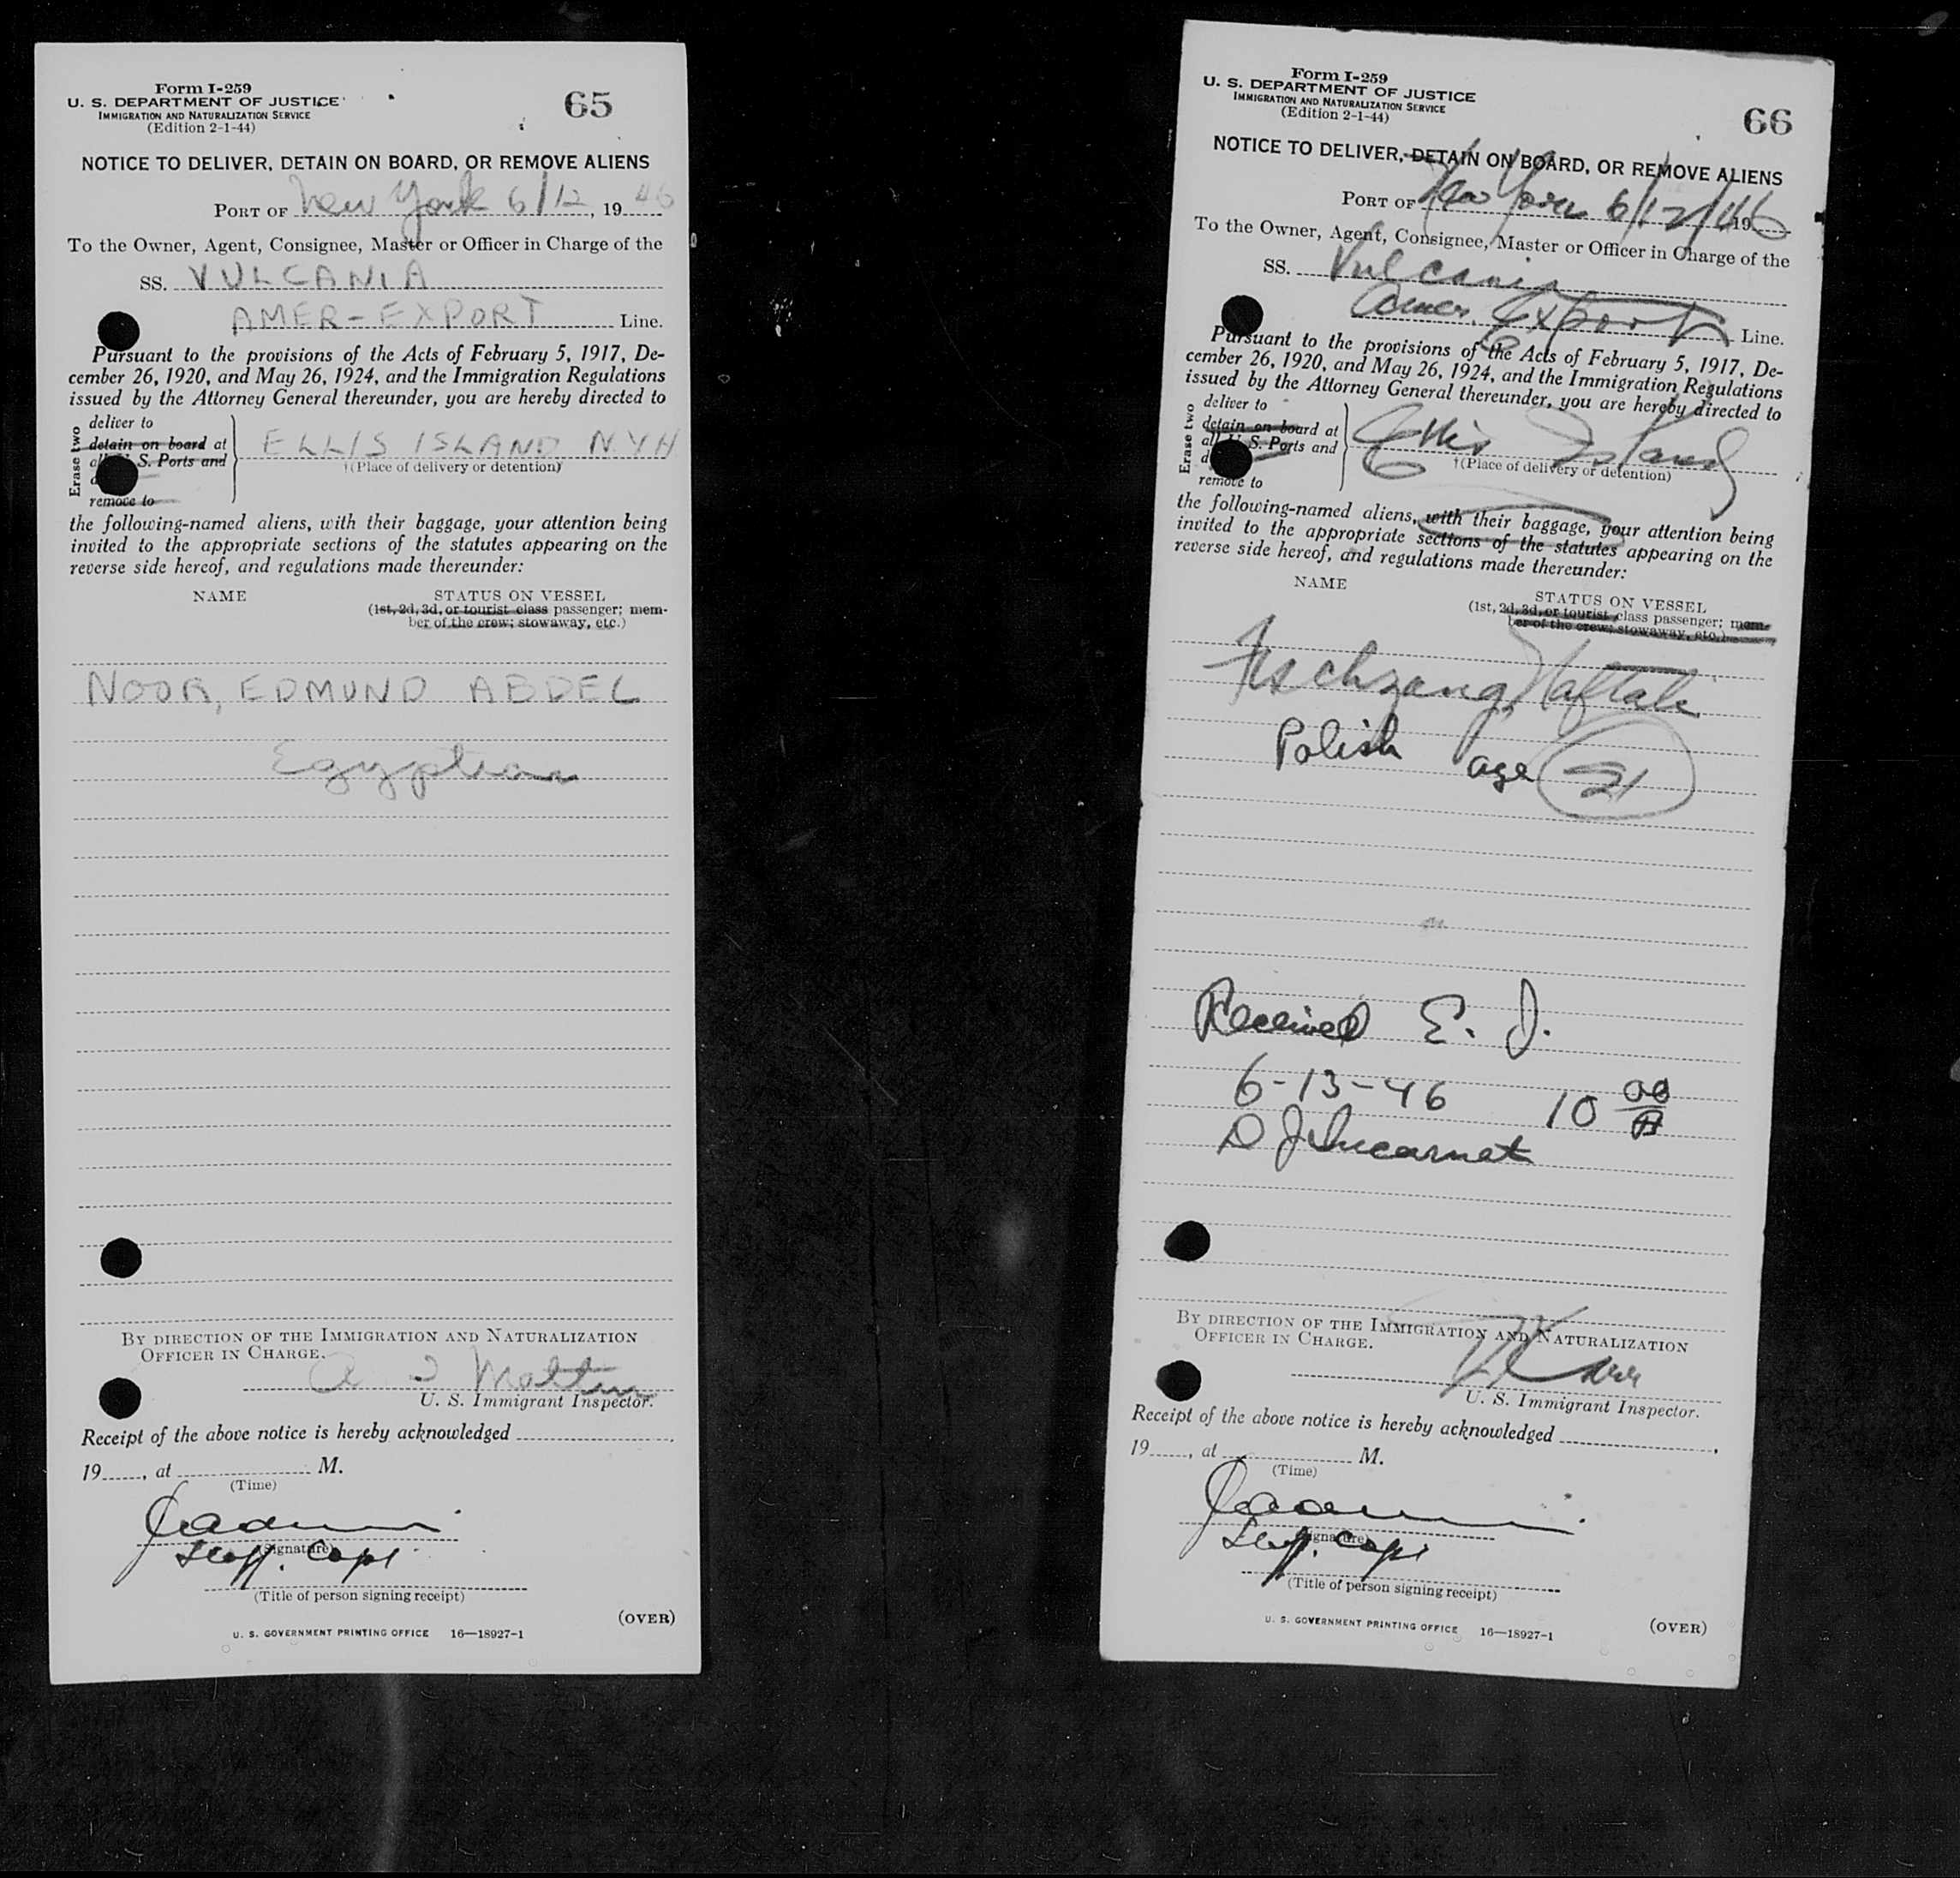 Form I-259
U. S. DEPARTMENT OF JUSTICE
IMMIGRATION AND NATURALIZATION SERVICE
(Edition 2-1-44)
65
NOTICE TO DELIVER, DETAIN ON BOARD, OR REMOVE ALIENS
PORT OF New York 6/12, 19 46
To the Owner, Agent, Consignee, Master or Officer in Charge of the
SS. VULCANIA
AMER-EXPORT Line.
Pursuant to the provisions of the Acts of February 5, 1917, De-
cember 26, 1920, and May 26, 1924, and the Immigration Regulations
issued by the Attorney General thereunder, you are hereby directed to
Erase two
deliver to
detain on board at
all U. S. Ports and
remove to
ELLIS ISLAND NYH
†(Place of delivery or detention)
the following-named aliens, with their baggage, your attention being
invited to the appropriate sections of the statutes appearing on the
reverse side hereof, and regulations made thereunder:
NAME STATUS ON VESSEL
(1st, 2d, 3d, or tourist class passenger; mem-
ber of the crew; stowaway, etc.)
NOOR, EDMUND ABDEL
Egyptian
BY DIRECTION OF THE IMMIGRATION AND NATURALIZATION
OFFICER IN CHARGE.
U. S. Immigrant Inspector.
Receipt of the above notice is hereby acknowledged
19, at M.
(Time)
(Signature)
(Title of person signing receipt)
(OVER)
U. S. GOVERNMENT PRINTING OFFICE 16—18927-1
Form I-259
U. S. DEPARTMENT OF JUSTICE
IMMIGRATION AND NATURALIZATION SERVICE
(Edition 2-1-44)
66
NOTICE TO DELIVER, DETAIN ON BOARD, OR REMOVE ALIENS
PORT OF New York 6/12/46 19
To the Owner, Agent, Consignee, Master or Officer in Charge of the
SS. Vulcania
Amer. Export Line.
Pursuant to the provisions of the Acts of February 5, 1917, De-
cember 26, 1920, and May 26, 1924, and the Immigration Regulations
issued by the Attorney General thereunder, you are hereby directed to
Erase two
deliver to
detain on board at
all U. S. Ports and
remove to
Ellis Island
†(Place of delivery or detention)
the following-named aliens, with their baggage, your attention being
invited to the appropriate sections of the statutes appearing on the
reverse side hereof, and regulations made thereunder:
NAME STATUS ON VESSEL
(1st, 2d, 3d, or tourist class passenger; mem-
ber of the crew; stowaway, etc.)
Naftali
Polish age 21
Received E. I.
6-13-46 10 00
BY DIRECTION OF THE IMMIGRATION AND NATURALIZATION
OFFICER IN CHARGE.
U. S. Immigrant Inspector.
Receipt of the above notice is hereby acknowledged
19, at M.
(Time)
(Signature)
(Title of person signing receipt)
U. S. GOVERNMENT PRINTING OFFICE 16—18927-1
(OVER)